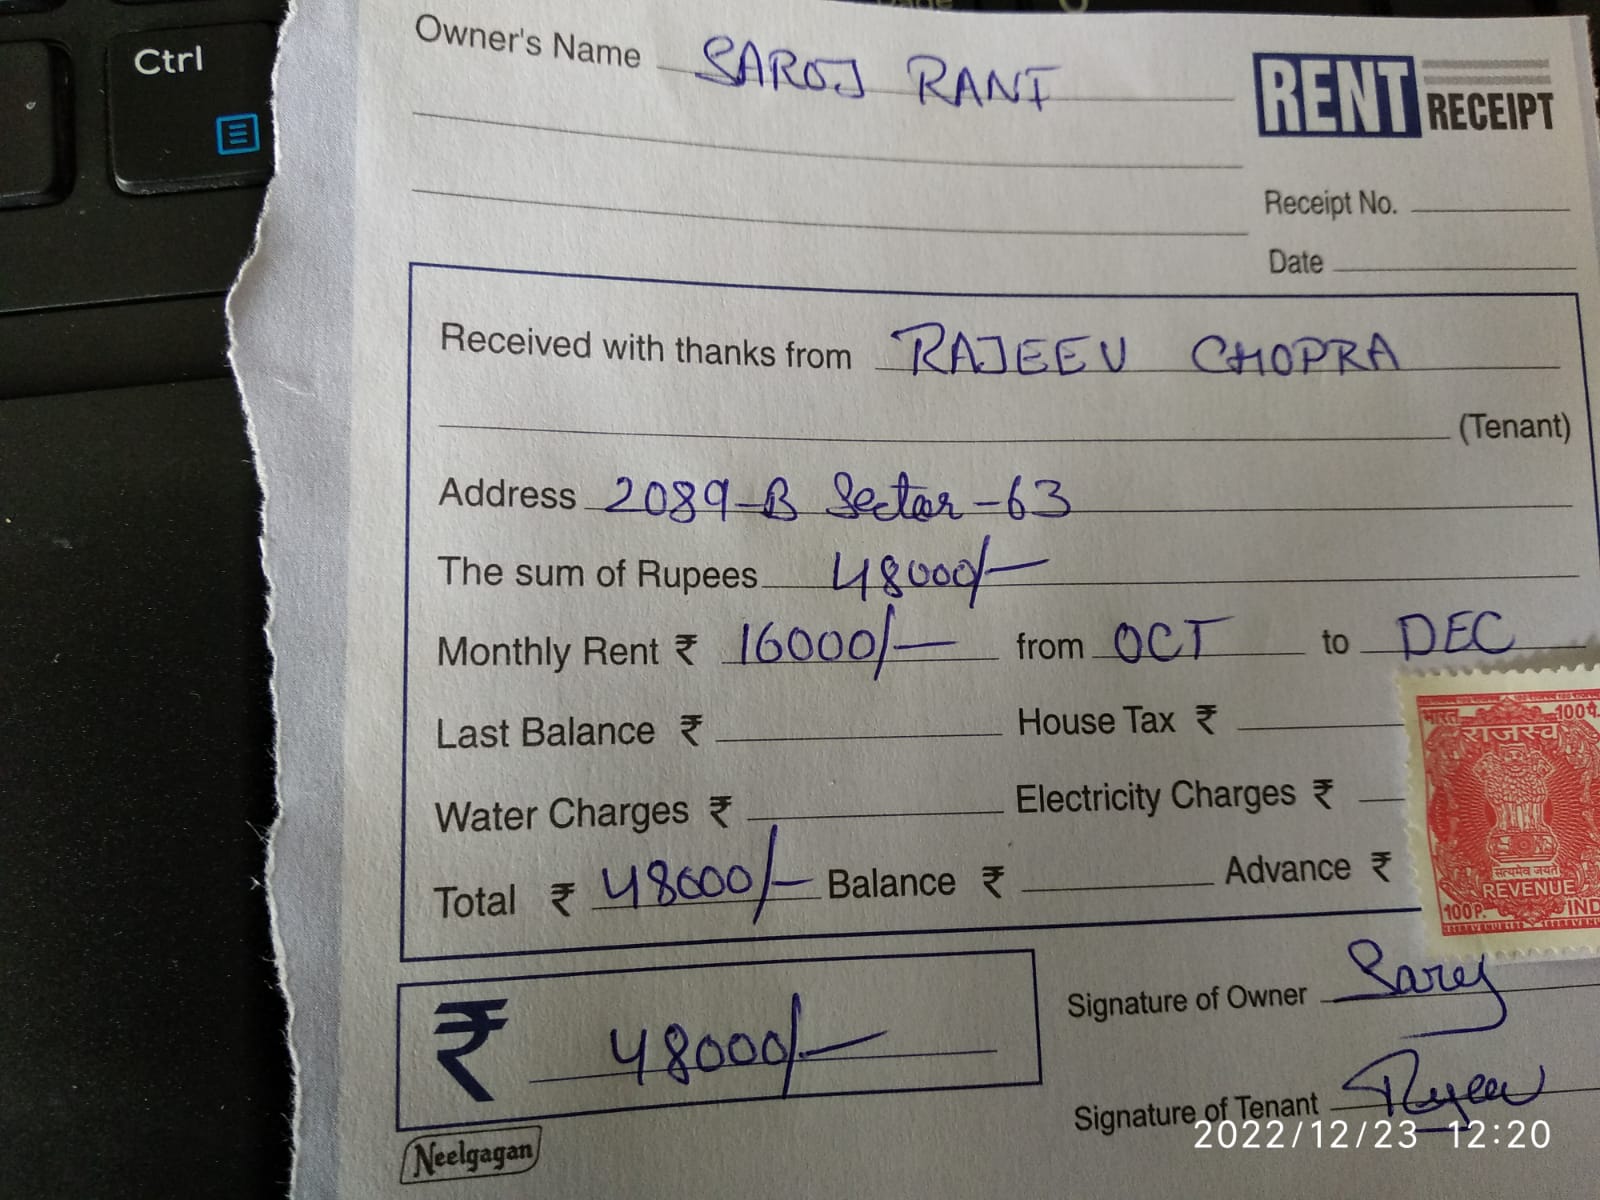 Ctrl
Owner's Name SAROJ RANI
RENT RECEIPT
Receipt No.
Date
Received with thanks from RAJEEV CHOPRA
(Tenant)
Address 2089-B Sector-63
The sum of Rupees 48000/-
Monthly Rent ₹ 16000/- from OCT to DEC
Last Balance ₹ House Tax ₹
Water Charges ₹ Electricity Charges ₹
Total ₹ 48000/- Balance ₹ Advance ₹
भारत 100पै.
राजस्व
सत्यमेव जयते
REVENUE
100P. IND
₹ 48000/-
Signature of Owner Saroj
Signature of Tenant Rajeev
Neelgagan
2022/12/23 12:20